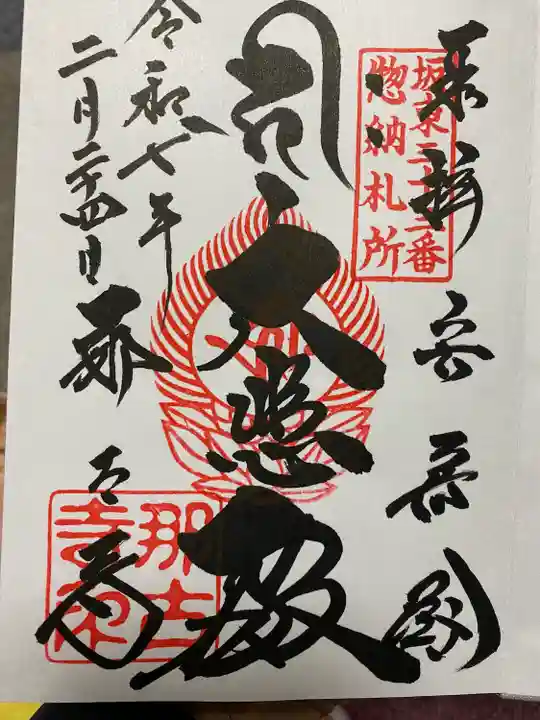 奉拝
坂東三十三番
惣納札所
安房國
大悲殿
令和七年
二月二十四日
那古寺
那古
寺印